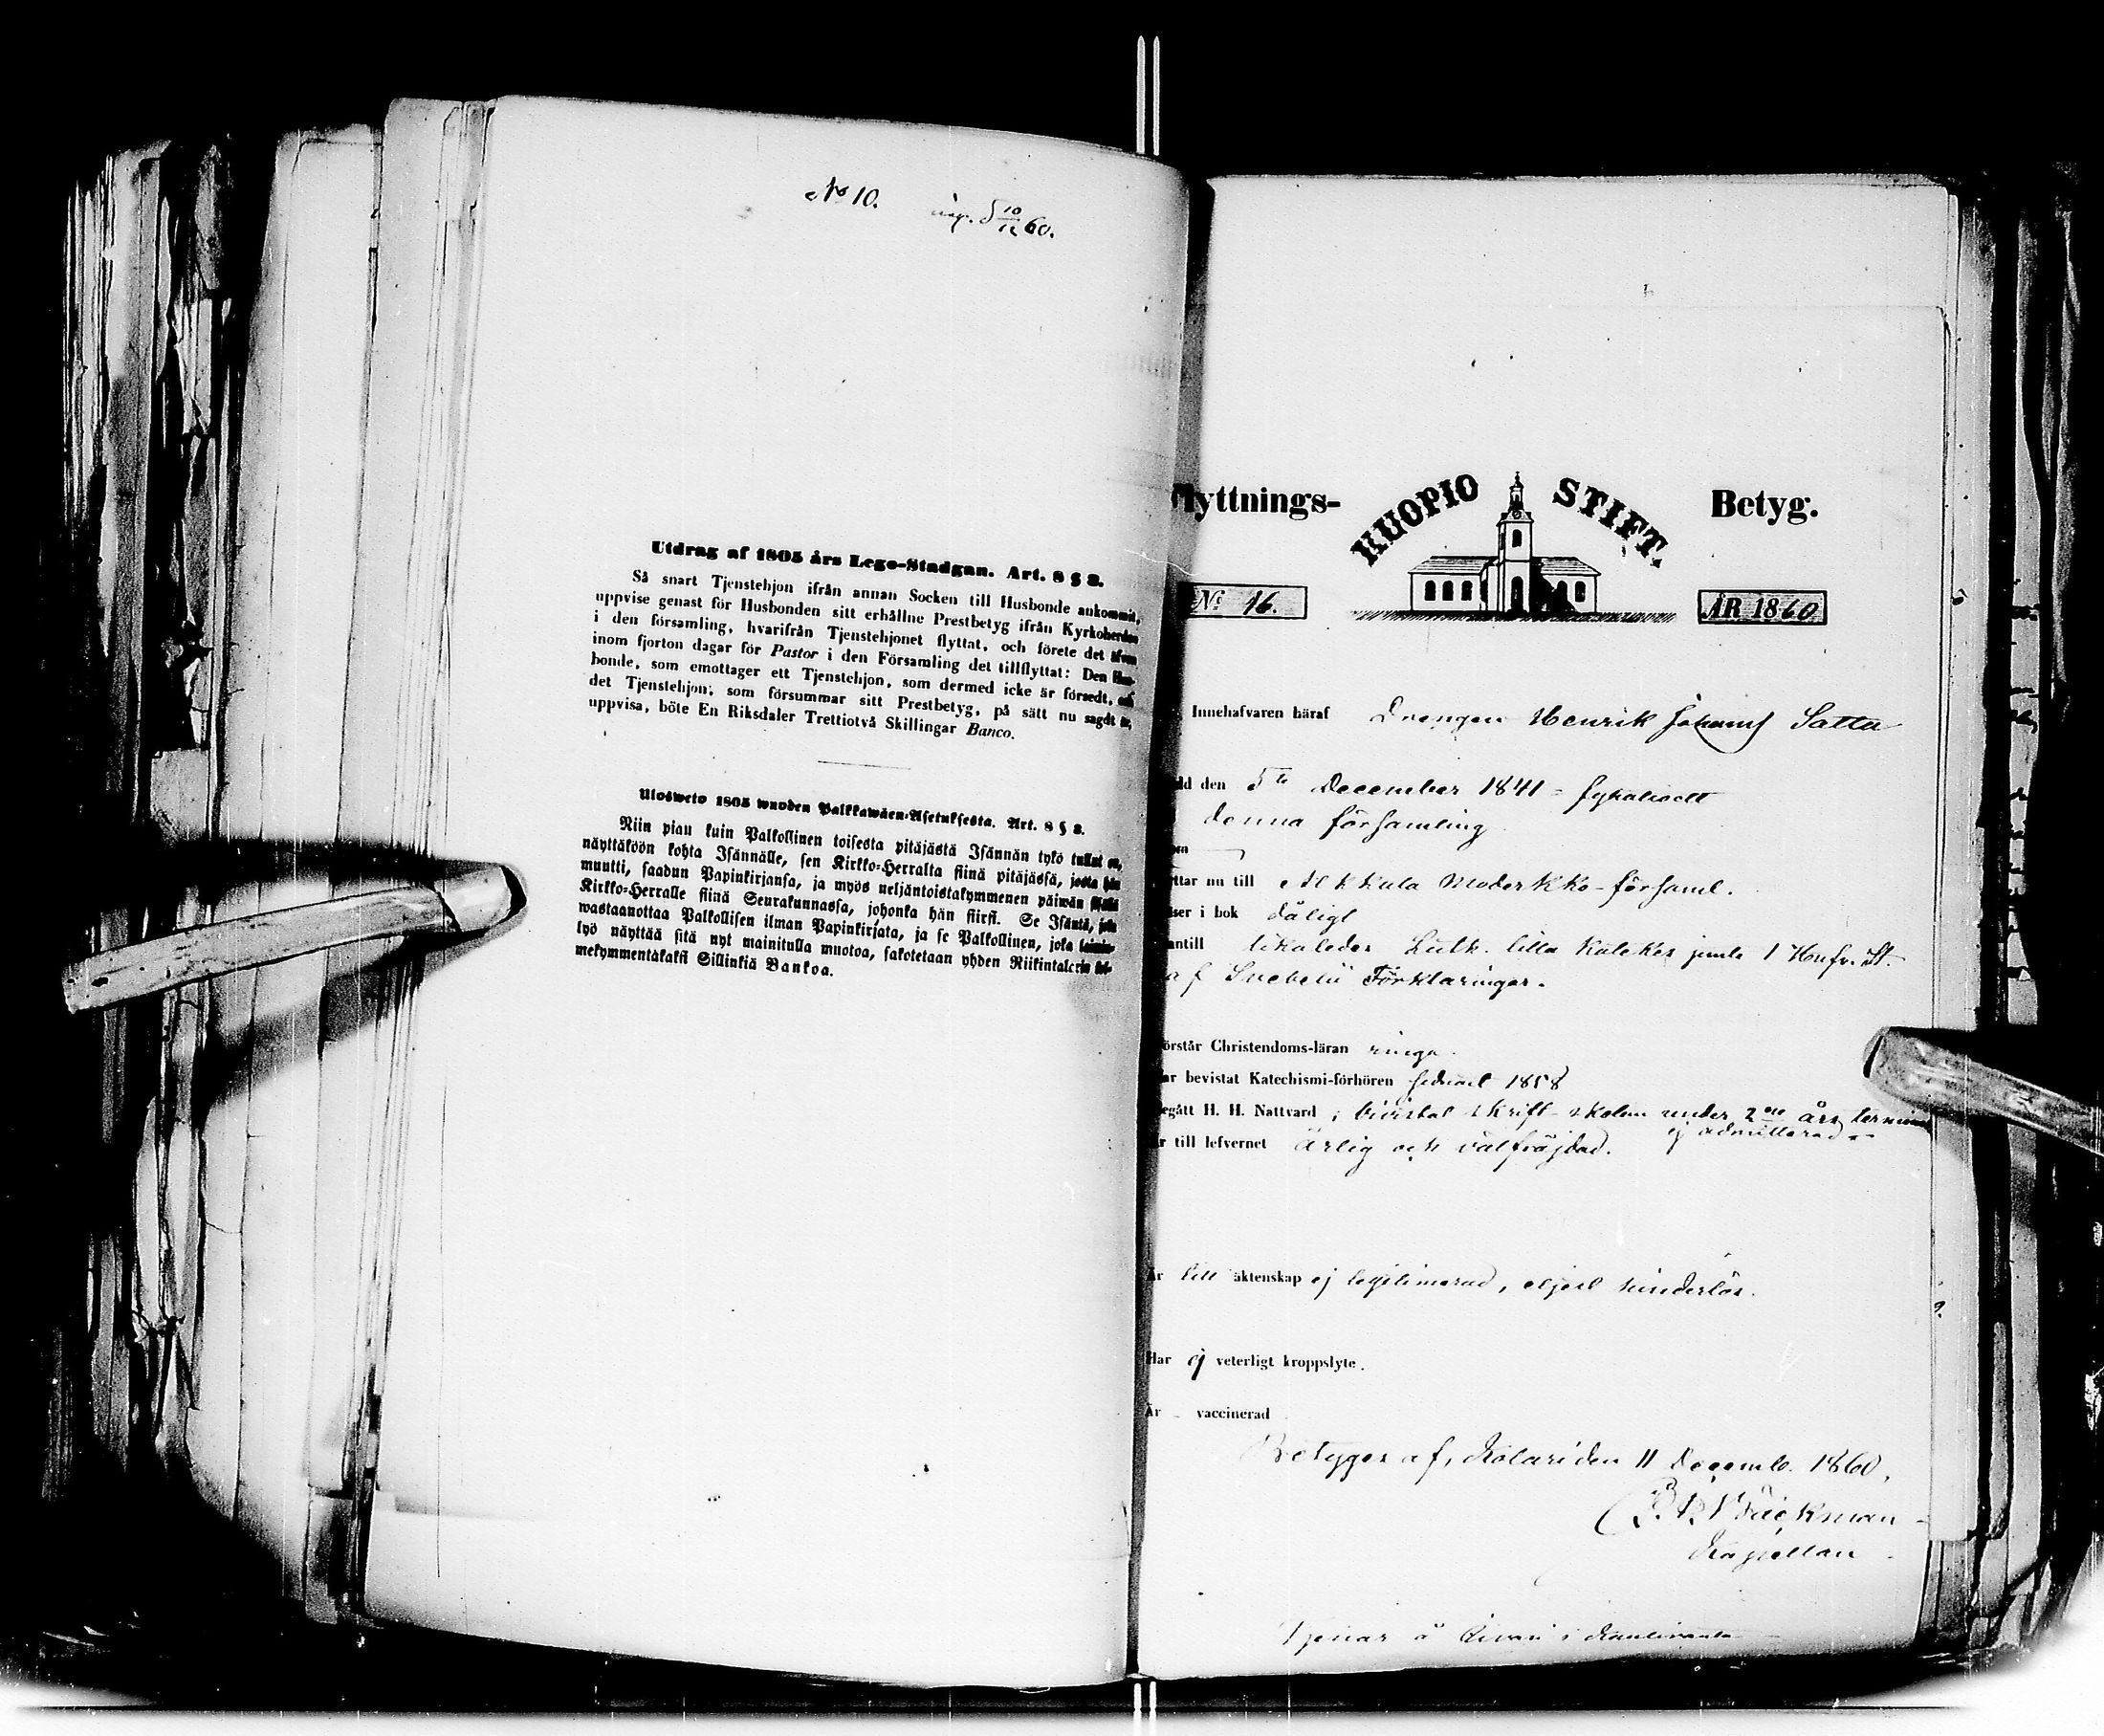 No 10.
ing. d 10/12 60.
Utdrag af 1805 års Lego-Stadgan. Art. 8 § 3.
Så snart Tjenstehjon ifrån annan Socken till Husbonde ankommit,
uppvise genast för Husbonden sitt erhållne Prestbetyg ifrån Kyrkoherden
i den församling, hvarifrån Tjenstehjonet flyttat, och förete det äfven
inom fjorton dagar för Pastor i den Församling det tillflyttat: Den Hus-
bonde, som emottager ett Tjenstehjon, som dermed icke är försedt, och
det Tjenstehjon; som försummar sitt Prestbetyg, på sätt nu sagdt är,
uppvisa, böte En Riksdaler Trettiotvå Skillingar Banco.
Ulosweto 1805 wuoden Palkkawäen-Asetuksesta. Art. 8 § 3.
Niin pian kuin Palkollinen toisesta pitäjästä Isännän tykö tullut on,
näyttäköön kohta Isännälle, sen Kirkko-Herralta siinä pitäjässä, josta hän
muutti, saadun Papinkirjansa, ja myös neljäntoistakymmenen päiwän sisällä
Kirkko-Herralle siinä Seurakunnassa, johonka hän siirsi. Se Isäntä, joka
wastaanottaa Palkollisen ilman Papinkirjata, ja se Palkollinen, joka laimin-
lyö näyttää sitä nyt mainitulla muotoa, sakotetaan yhden Riikintalerin kol-
mekymmentäkaksi Sillinkiä Bankoa.
lyttnings- KUOPIO STIFT. Betyg.
No 16. ÅR 1860
Innehafvaren häraf Drengen Henrik Johans Satta
dd den 5te December 1841
denna församling
ttar nu till Alkkula Moderkko-församl.
ser i bok dåligt
antill likaledes Luth. lilla Kateches jemte 1 Hufv. St.
af Svebelii Förklaringar.
örstår Christendoms-läran ringa.
ar bevistat Katechismi-förhören sednast 1858
egått H. H. Nattvard, bivistat skrift-skolan under 2ne års termin
ej admitterad
r till lefvernet ärlig och välfräjdad.
Är till äktenskap ej legitimerad, eljest hinderlös.
Har ej veterligt kroppslyte.
Är vaccinerad
Betygas af, Kolari den 11 Decemb. 1860,
Bäckman
Kapellan
Tjenar å i